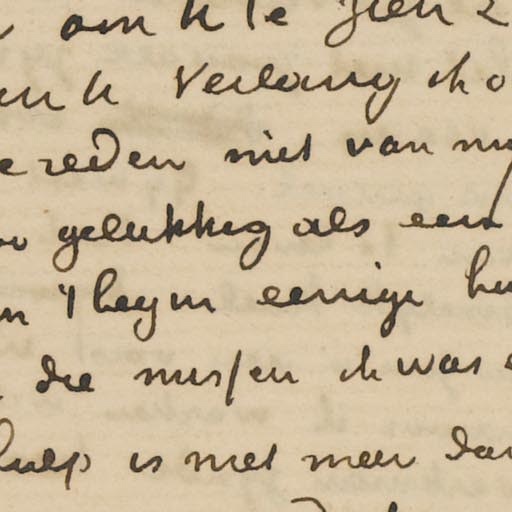 om U te zien
U Verlang ik
reden niet van my
gelukkig als een
't heym eenige
die missen ik was
hulp is niet meer dan